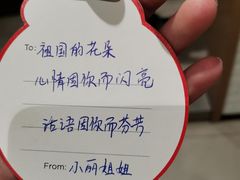 To: 祖国的花朵
心情因你而闪亮
话语因你而芬芳
From: 小丽姐姐